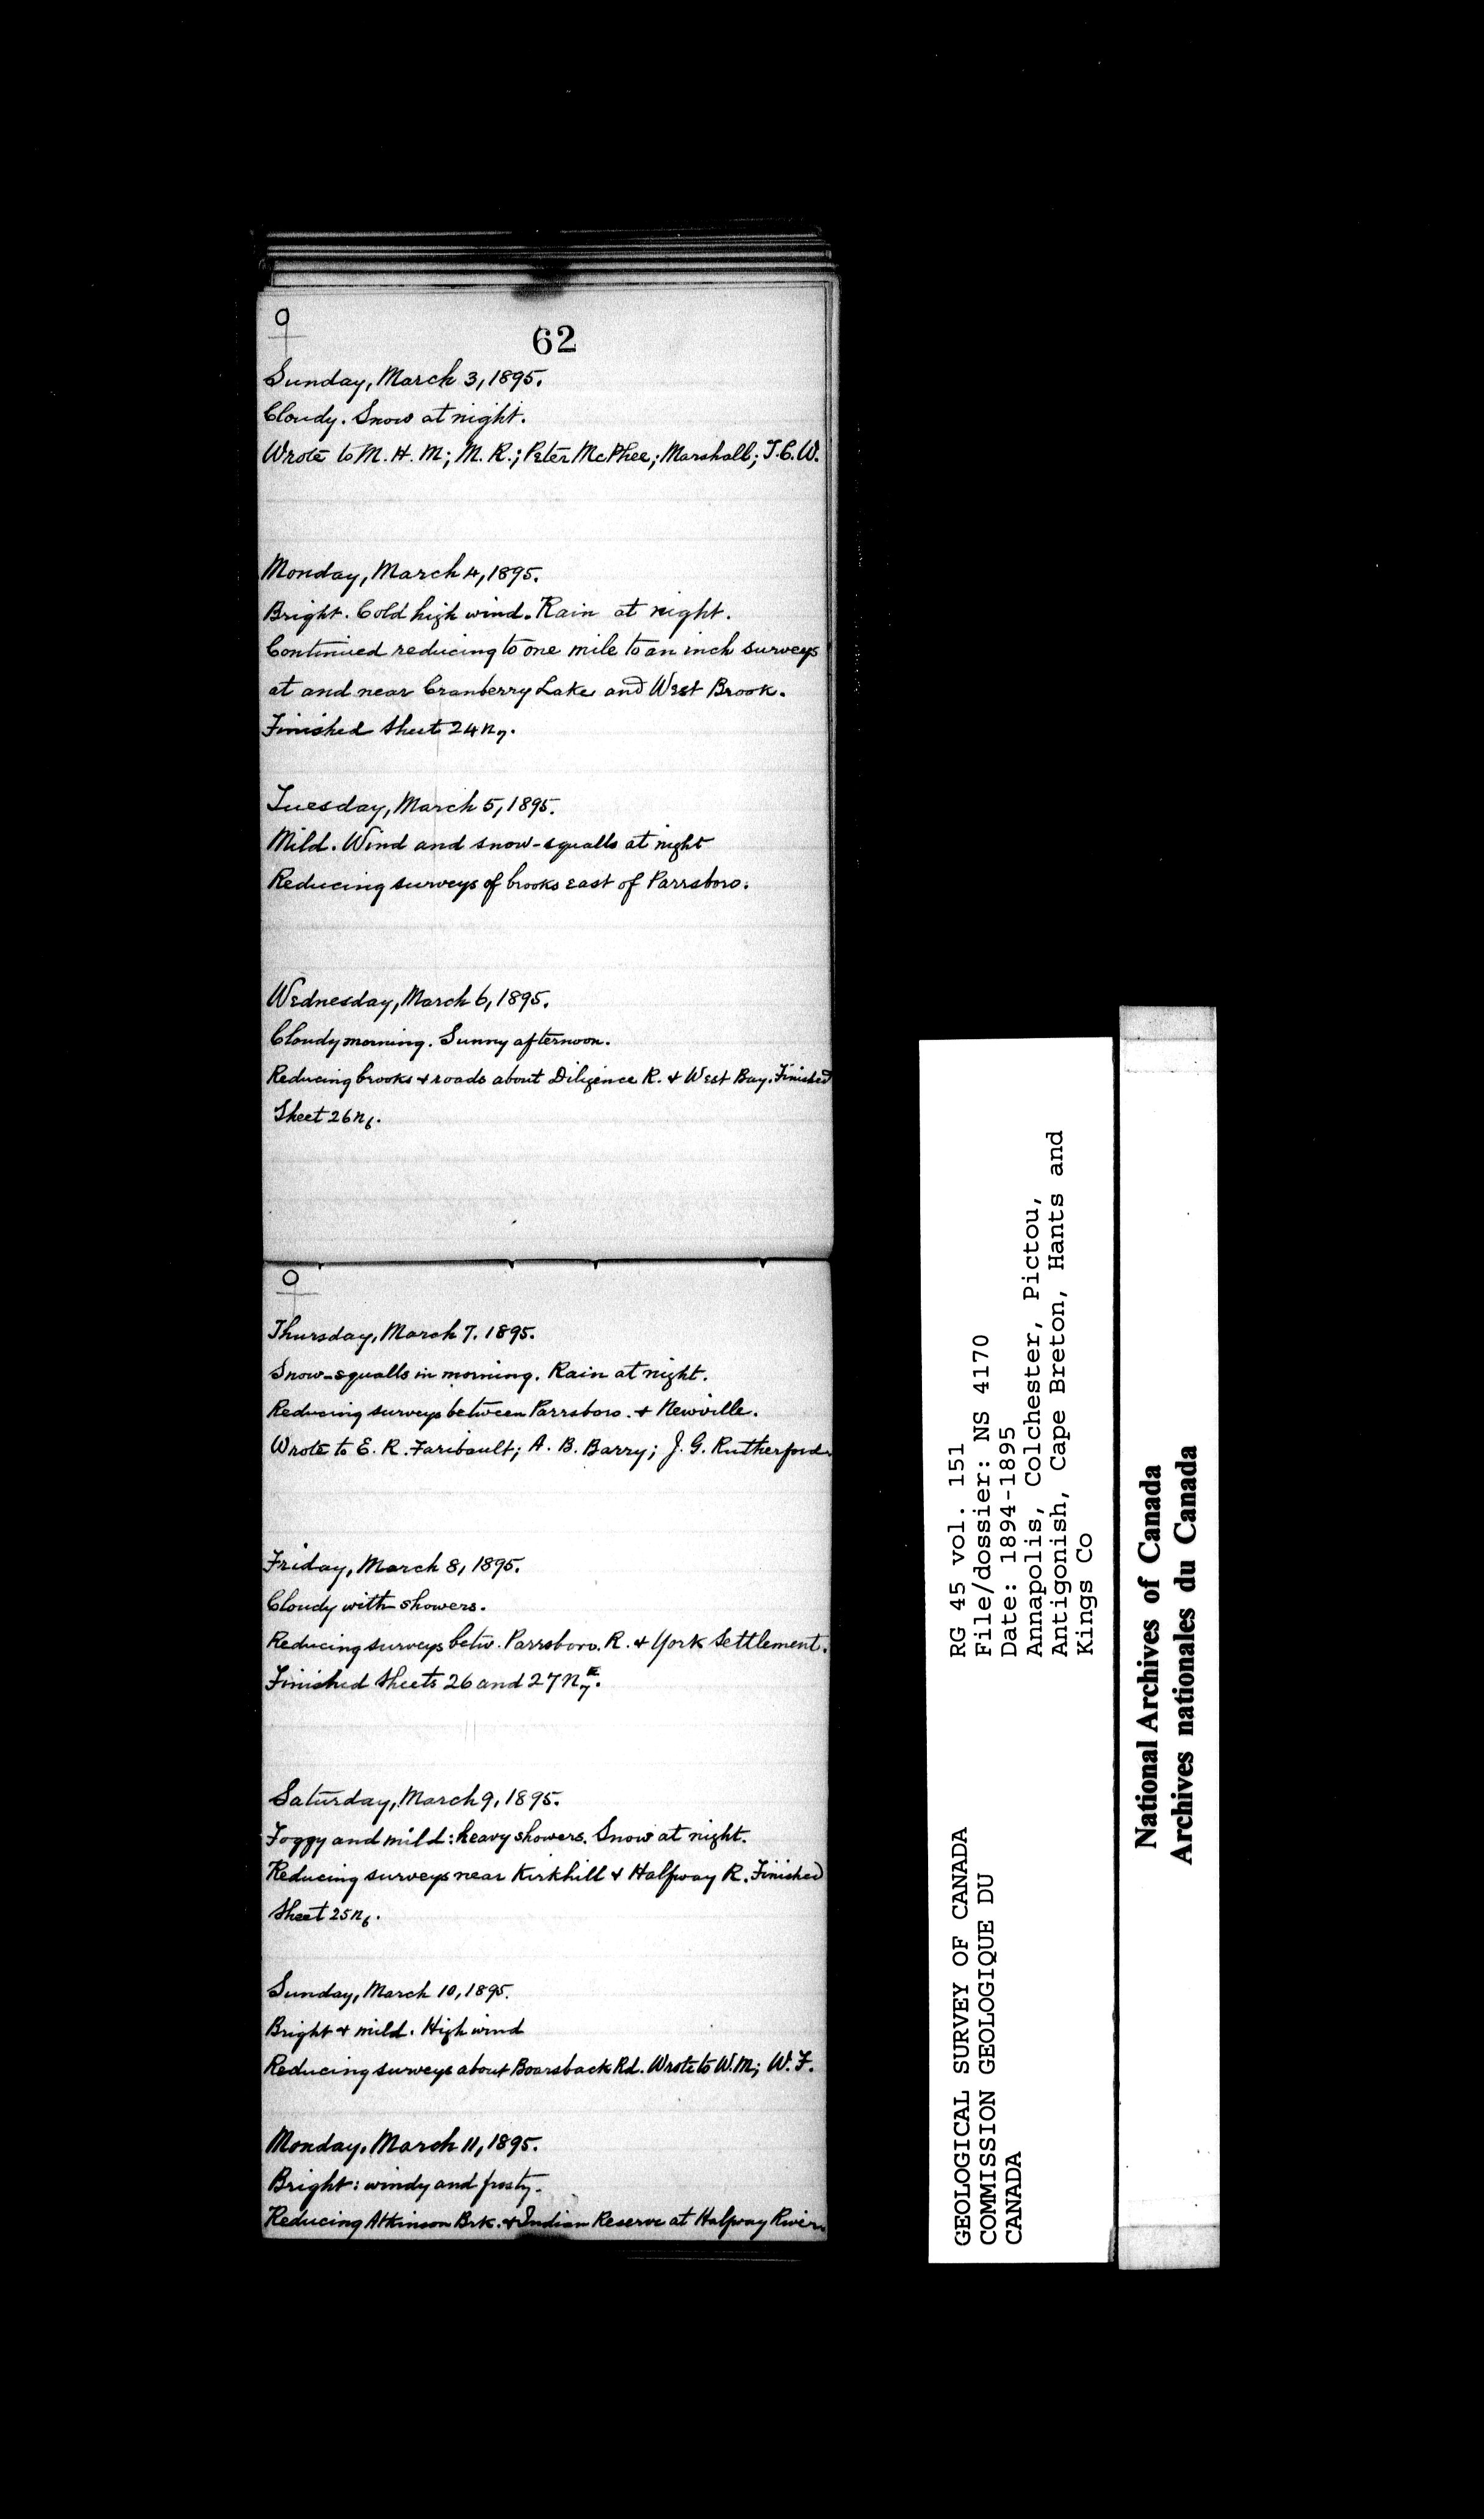 62
Sunday, March 3, 1895.
Cloudy. Snow at night.
Wrote to M. H. M; M. R.; Peter McPhee; Marshall; T.C.W.
Monday, March 4, 1895.
Bright. Cold high wind. Rain at night.
Continued reducing to one mile to an inch surveys
at and near Cranberry Lake and West Brook.
Finished Sheet 24 n7.
Tuesday, March 5, 1895.
Mild. Wind and snow-squalls at night
Reducing surveys of brooks east of Parrsboro.
Wednesday, March 6, 1895.
Cloudy morning. Sunny afternoon.
Reducing brooks + roads about Diligence R. + West Bay. Finished
Sheet 26 n6.
Thursday, March 7. 1895.
Snow-squalls in morning. Rain at night.
Reducing surveys between Parrsboro. + Newville.
Wrote to E. R. Faribault; A. B. Barry; J. G. Rutherford.
Friday, March 8, 1895.
Cloudy with showers.
Reducing surveys betw. Parrsboro. R. + York Settlement.
Finished Sheets 26 and 27 n7.
Saturday, March 9, 1895.
Foggy and mild: heavy showers. Snow at night.
Reducing surveys near Kirkhill + Halfway R. Finished
Sheet 25 n6.
Sunday, March 10, 1895.
Bright + mild. High wind
Reducing surveys about Boarsback Rd. Wrote to W.M; W. F.
Monday, March 11, 1895.
Bright: windy and frosty.
Reducing Atkinson Brk. + Indian Reserve at Halfway River.
GEOLOGICAL SURVEY OF CANADA
COMMISSION GEOLOGIQUE DU
CANADA
RG 45 vol. 151
File/dossier: NS 4170
Date: 1894-1895
Annapolis, Colchester, Pictou,
Antigonish, Cape Breton, Hants and
Kings Co
National Archives of Canada
Archives nationales du Canada